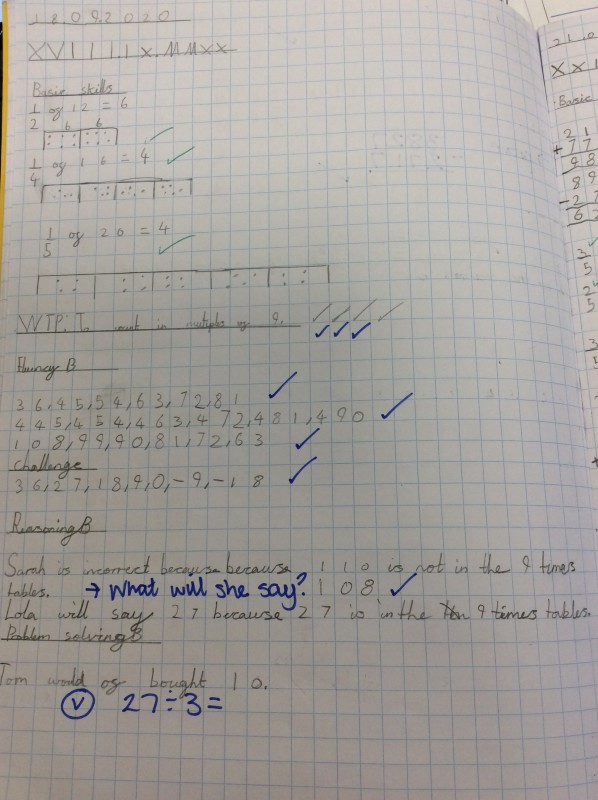 18092020
XVIII.IX.MMXX
Basic skills
1/2 of 12 = 6
6 6
1/4 of 16 = 4
1/5 of 20 = 4
WTP: To count in multiples of 9.
Fluency B
36,45,54,63,72,81
445,454,463,472,481,490
108,99,90,81,72,63
Challenge
36,27,18,9,0,-9,-18
Reasoning B
Sarah is incorrect because because 110 is not in the 9 times
tables. → What will she say? 108
Lola will say 27 because 27 is in the 9 times tables.
Problem solving B
Tom would of bought 10.
V 27÷3=
210
XXI
Basic
21
+77
98
89
-27
62
3/5
2/5
3